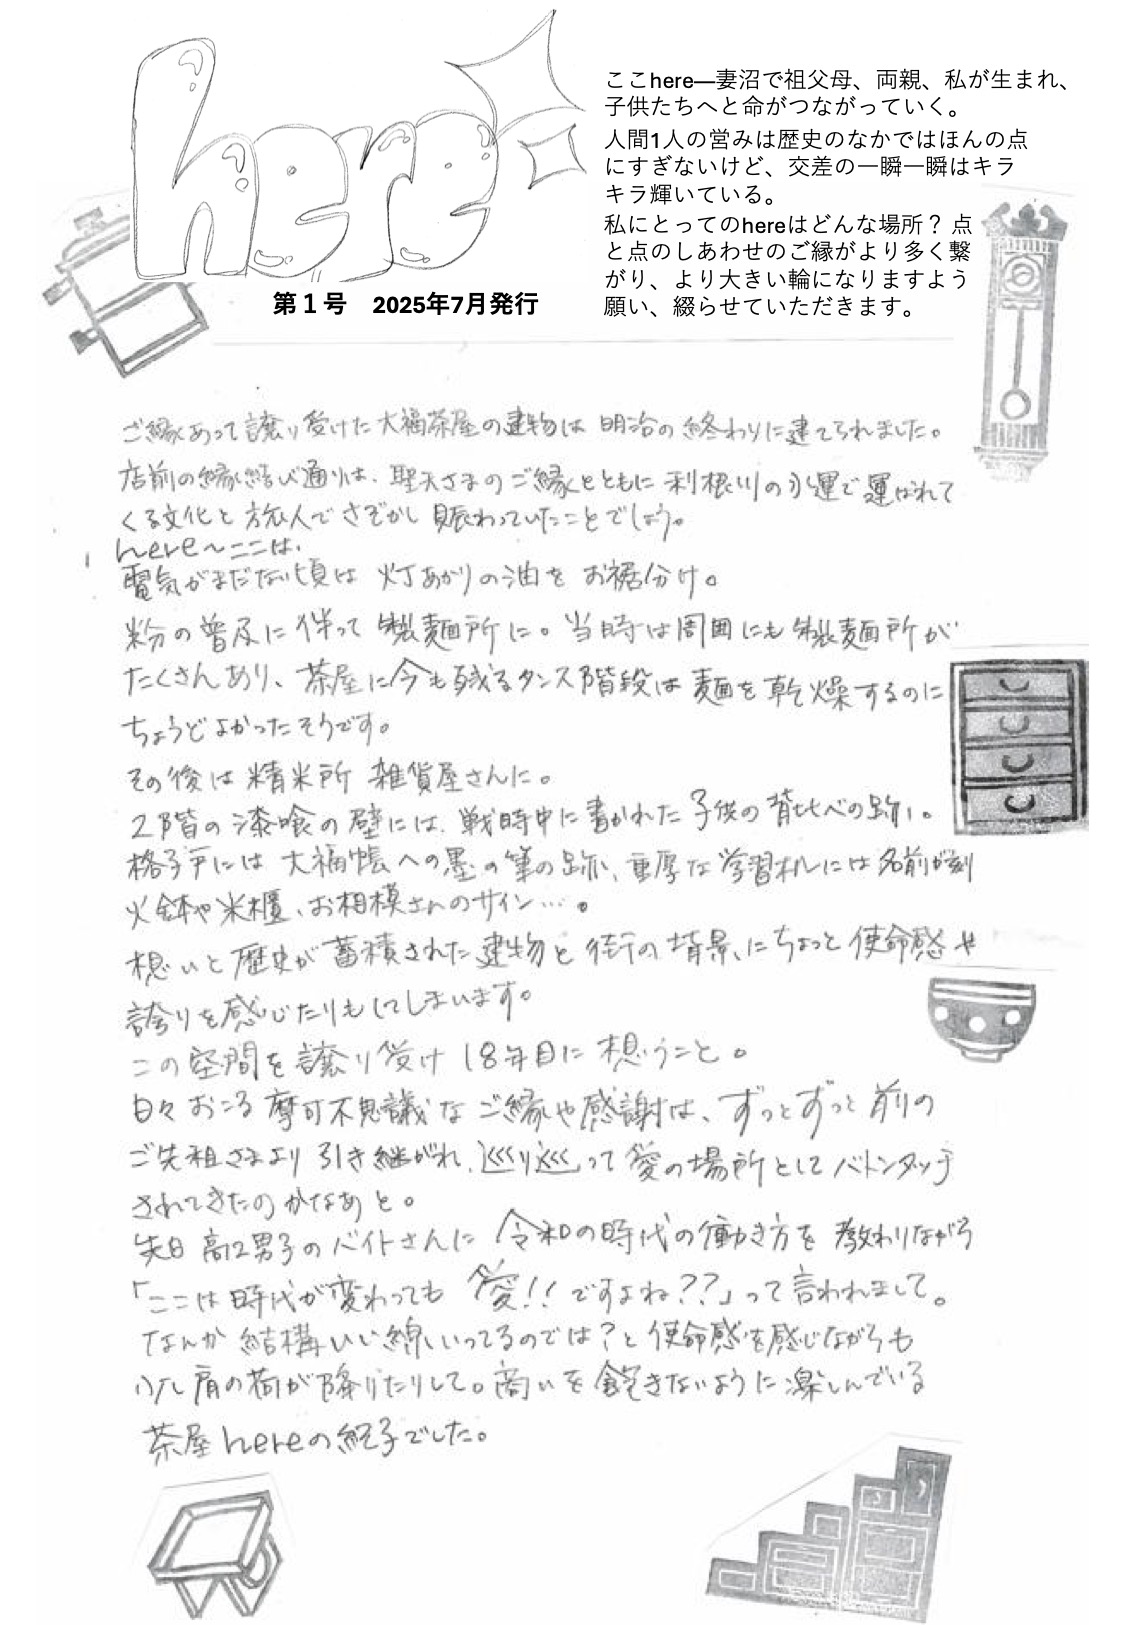 here
第１号　2025年7月発行
ここhere—妻沼で祖父母、両親、私が生まれ、
子供たちへと命がつながっていく。
人間1人の営みは歴史のなかではほんの点
にすぎないけど、交差の一瞬一瞬はキラ
キラ輝いている。
私にとってのhereはどんな場所？点
と点のしあわせのご縁がより多く繋
がり、より大きい輪になりますよう
願い、綴らせていただきます。
ご縁あって譲り受けた大福茶屋の建物は 明治の終わりに建てられました。
店前の縁結び通りは、聖天さまのご縁とともに利根川の水運で運ばれて
くる文化と旅人でさぞかし賑わっていたことでしょう。
here〜ここは、
電気がまだない頃は 灯あかりの油を お裾分け。
粉の普及に伴って 製麺所に。当時は周囲にも製麺所が
たくさんあり、茶屋に今も残るタンス階段は麺を乾燥するのに
ちょうどよかったそうです。
その後は精米所 雑貨屋さんに。
2階の漆喰の壁には、戦時中に書かれた子供の背比べの跡。
格子戸には大福帳への墨の筆の跡、重厚な学習机には名前が刻
火鉢や米櫃、お相撲さんのサイン…。
想いと歴史が蓄積された建物と街の情景にちょっと使命感や
誇りを感じたりもしてしまいます。
この空間を譲り受け18年目に想うこと。
日々おこる摩可不思議なご縁や感謝は、ずっとずっと前の
ご先祖さまより引き継がれ、巡り巡って愛の場所としてバトンタッチ
されてきたのかなあと。
先日 高2男子のバイトさんに 令和の時代の働き方を教わりながら
「ここは時代が変わっても 愛!!ですよね??」って言われまして。
なんか結構いい線いってるのでは？と使命感を感じながらも
肩の荷が降りたりして。商いを飽きないように楽しんでいる
茶屋hereの紀子でした。